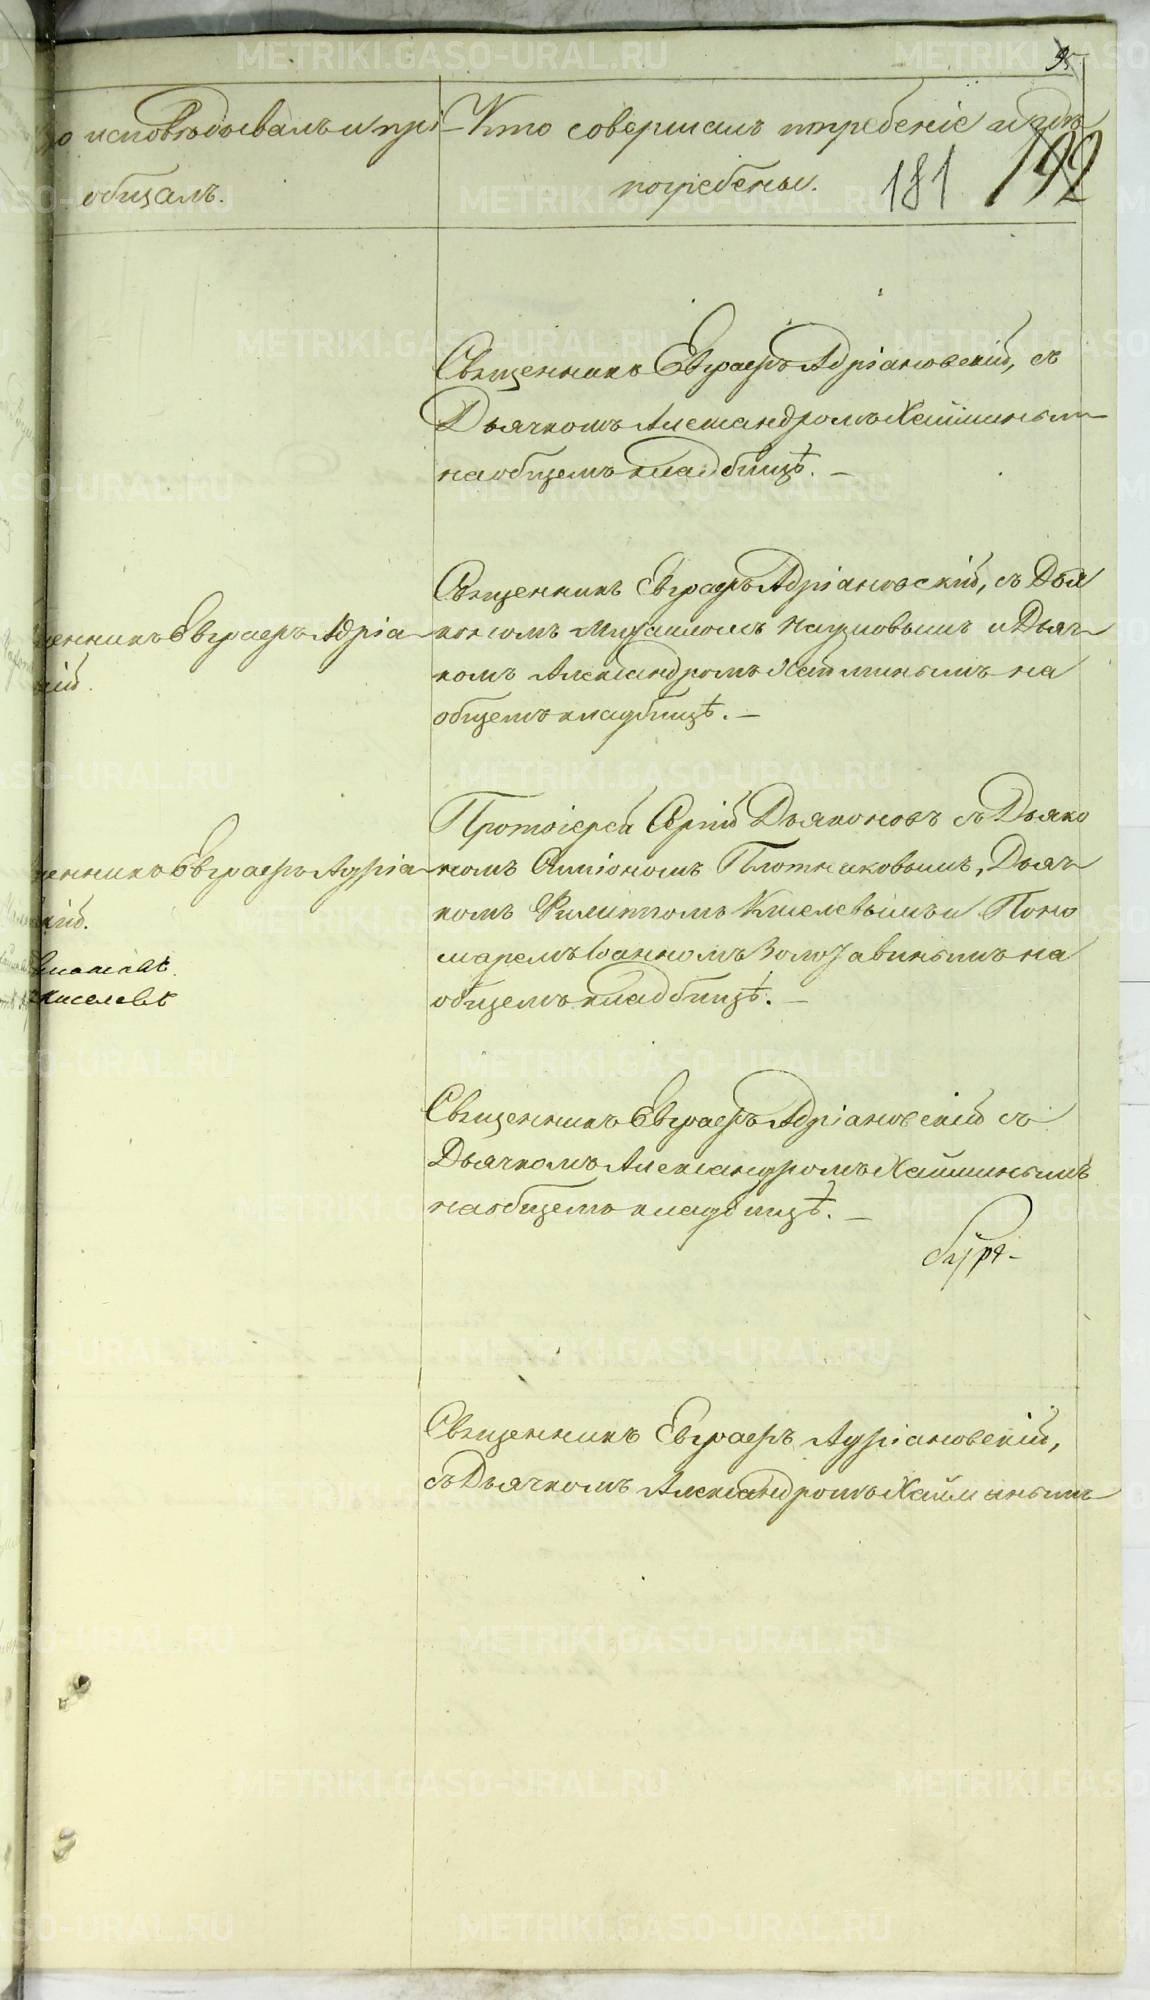 о исповѣдывалъ и прі
общалъ.
Кто совершалъ погребеніе и гдѣ
погребены.
181 192
Священникъ Евграфъ Адріановскій, съ
Дьячкомъ Александромъ Хайминымъ
на общемъ кладбищѣ. —
Священникъ Евграфъ Адріановскій, съ Дья
кономъ Михаиломъ Наумовымъ и Дьяч
комъ Александромъ Хайминымъ на
общемъ кладбищѣ. —
енникъ Евграфъ Адріа
кій.
Протоіерей Сергій Дьяконовъ съ Дьяко
номъ Симіономъ Плотниковымъ, Дьяч
комъ Филиппомъ Киселевымъ и Поно
маремъ Іоанномъ Золотавинымъ на
общемъ кладбищѣ. —
енникъ Евграфъ Адріа
кій.
Киселевъ
Священникъ Евграфъ Адріановскій съ
Дьячкомъ Александромъ Хайминымъ
на общемъ кладбищѣ. —
Священникъ Евграфъ Адріановскій,
съ Дьячкомъ Александромъ Хайминымъ
METRIKI.GASO-URAL.RU